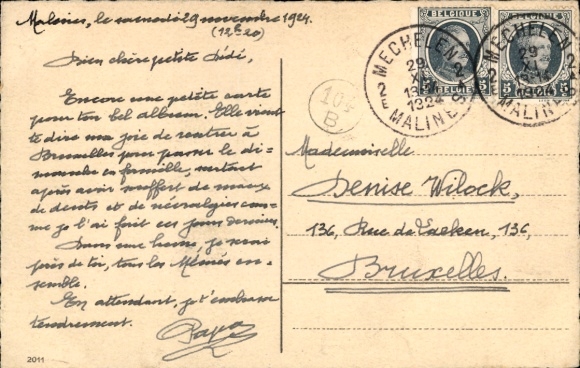 Malines, le samedi 29 novembre 1924.
(12h20)
Bien chère petite Dédé,
Encore une petite carte
pour ton bel album. Elle vient
te dire ma joie de rentrer à
Bruxelles pour passer le di-
manche en famille, surtout
après avoir souffert de maux
de dents et de névralgies com-
me je l'ai fait ces jours derniers.
Dans une heure, je serai
près de toi, tous les Mémés en-
semble.
En attendant, je t'embrasse
tendrement.
Papa
2011
BELGIQUE
5 BELGIË 5
BELGIQUE
5 BELGIË 5
MECHELEN 2
29
XI
1924
2E MALINES
MECHELEN 2
29
XI
13-14
1924
2 MALINES
104
B
Mademoiselle
Denise Wilock,
136, Rue de Laeken, 136,
Bruxelles.